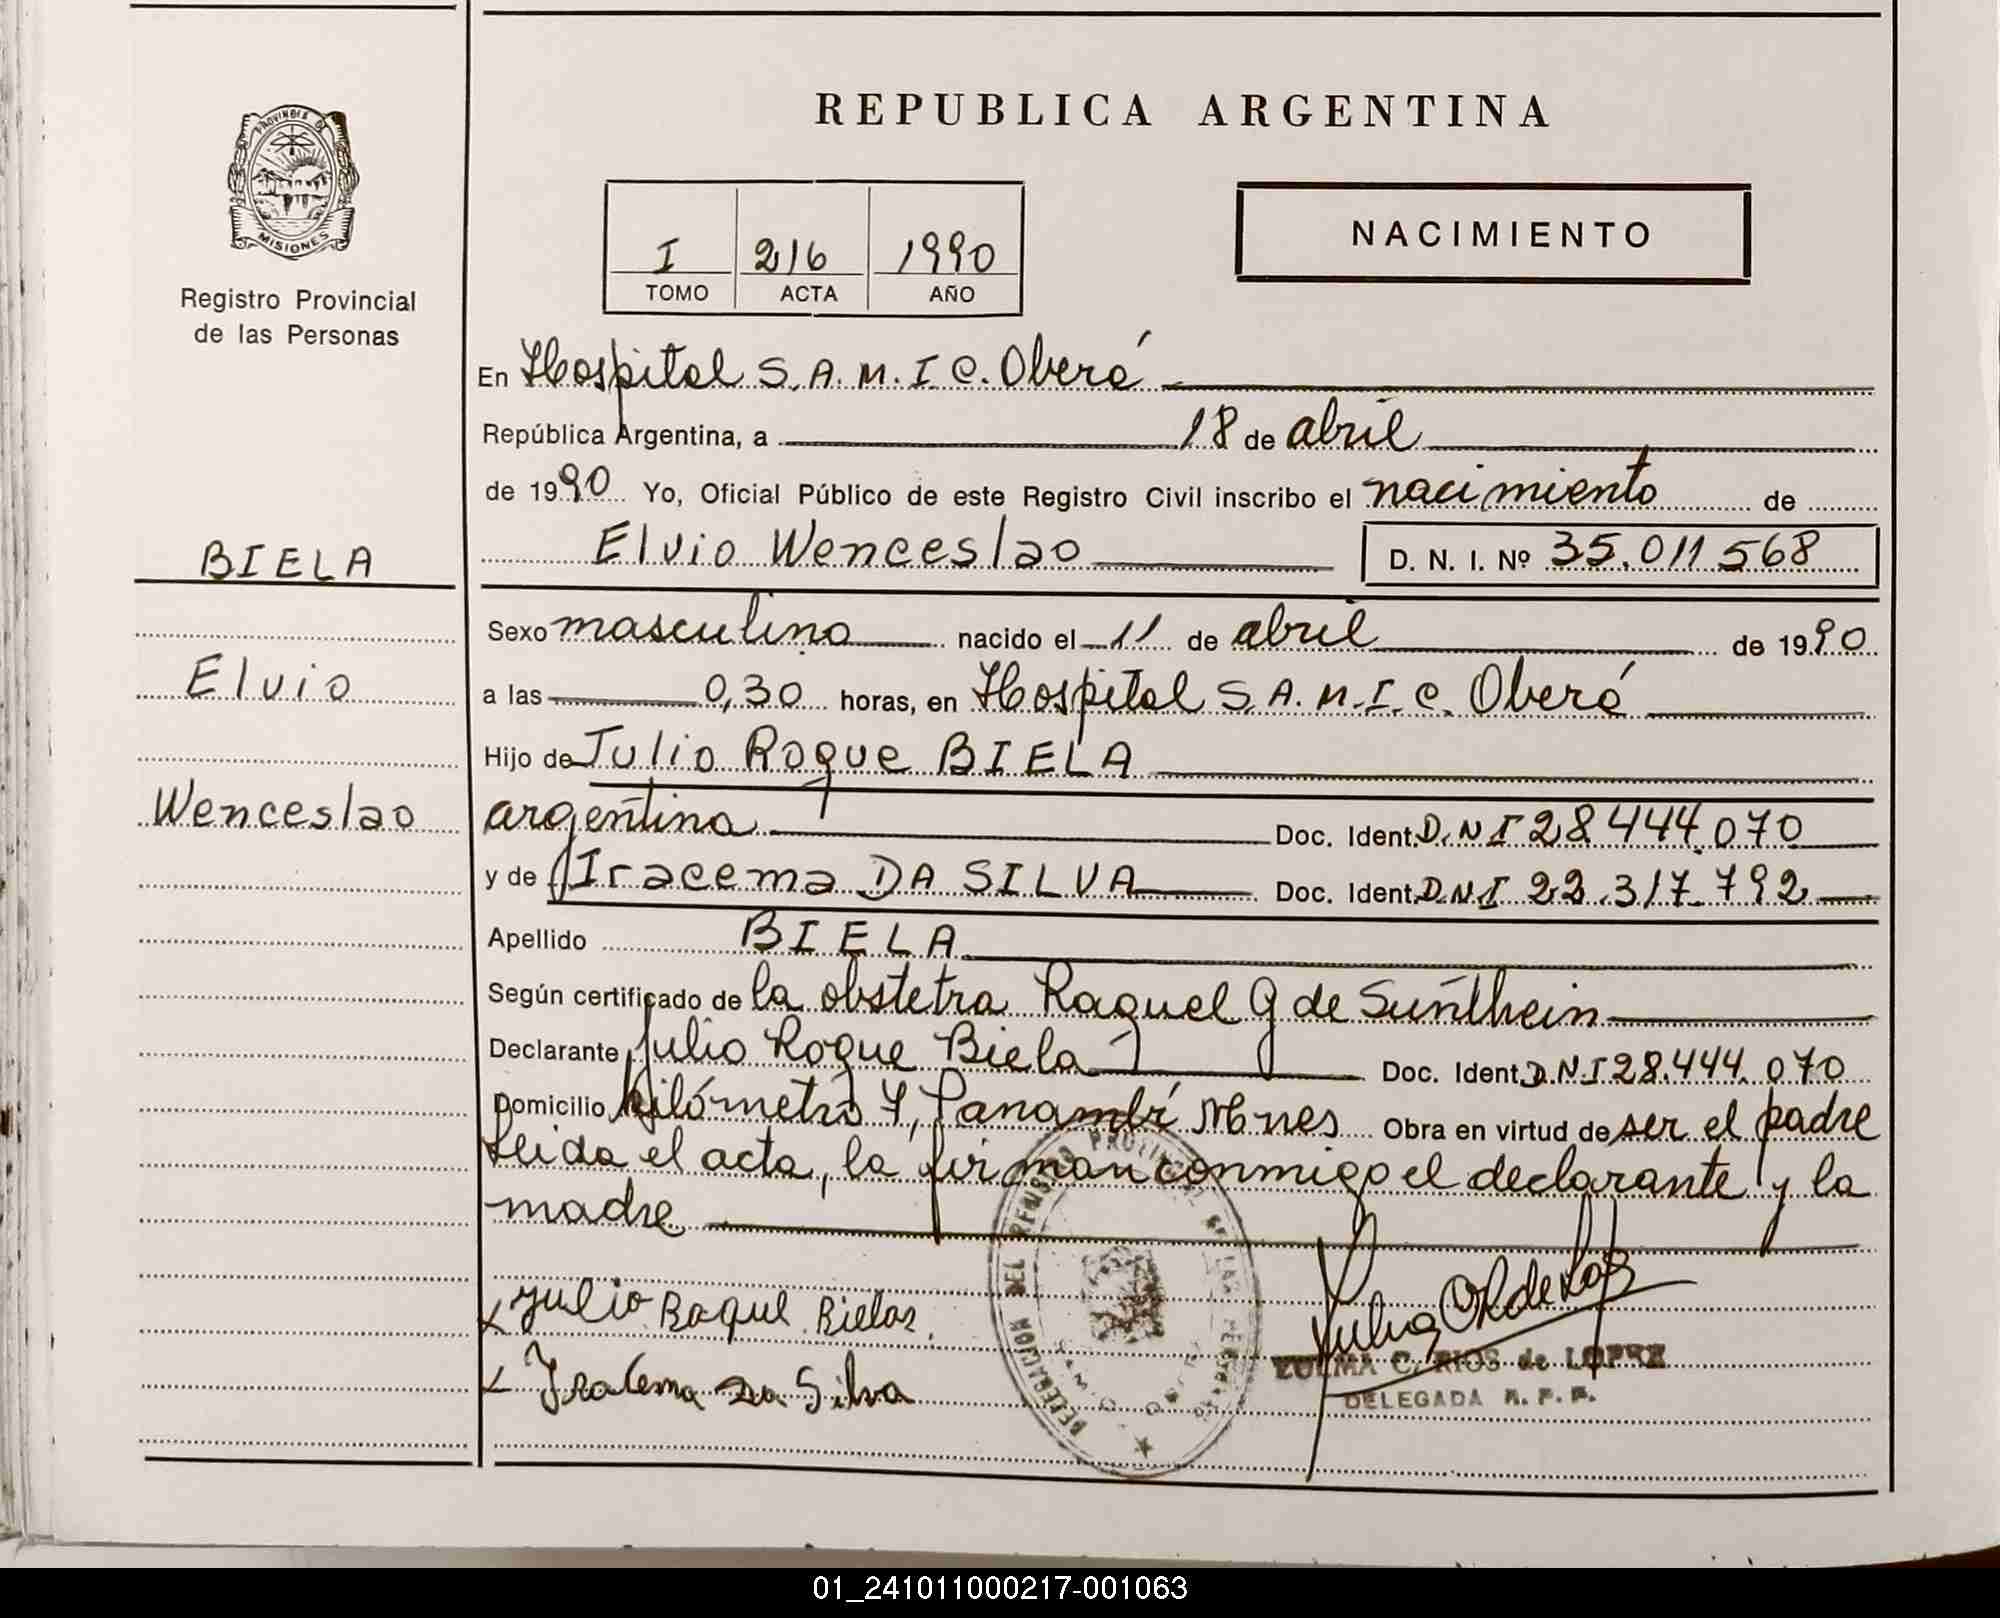 REPUBLICA ARGENTINA
PROVINCIA DE
MISIONES
Registro Provincial
de las Personas
I 216 1990
TOMO ACTA AÑO
NACIMIENTO
En Hospital S.A.M.I.C. Oberá
República Argentina, a 18 de abril
de 1990 Yo, Oficial Público de este Registro Civil inscribo el nacimiento de
BIELA
Elvio Wenceslao D. N. I. Nº 35.011.568
Sexo masculino nacido el 11 de abril de 1990
Elvio
a las 0,30 horas, en Hospital S.A.M.I.C. Oberá
Hijo de Julio Roque BIELA
Wenceslao
argentina Doc. Ident. D.N.I 28.444.070
y de Iracema DA SILVA Doc. Ident. D.N.I 22.317.792
Apellido BIELA
Según certificado de la obstetra Raquel G de Sunthein
Declarante Julio Roque Biela Doc. Ident. D.N.I 28.444.070
Domicilio kilómetro 7, Panambí Mnes Obra en virtud de ser el padre
Leida el acta, la firman conmigo el declarante y la
madre
DELEGACION DEL REGISTRO PROVINCIAL DE LAS PERSONAS
x Julio Roque Biela
x Iracema Da Silva
ZULMA C. RIOS de LOPEZ
DELEGADA R. P. P.
01_241011000217-001063